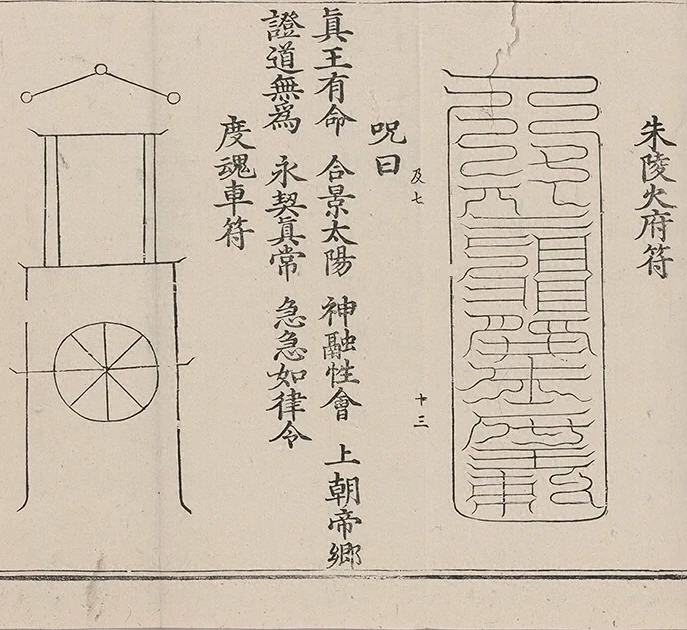 朱陵火府符
及七
十三
咒曰
眞王有命 合景太陽 神融性會 上朝帝鄉
證道無爲 永契眞常 急急如律令
度魂車符